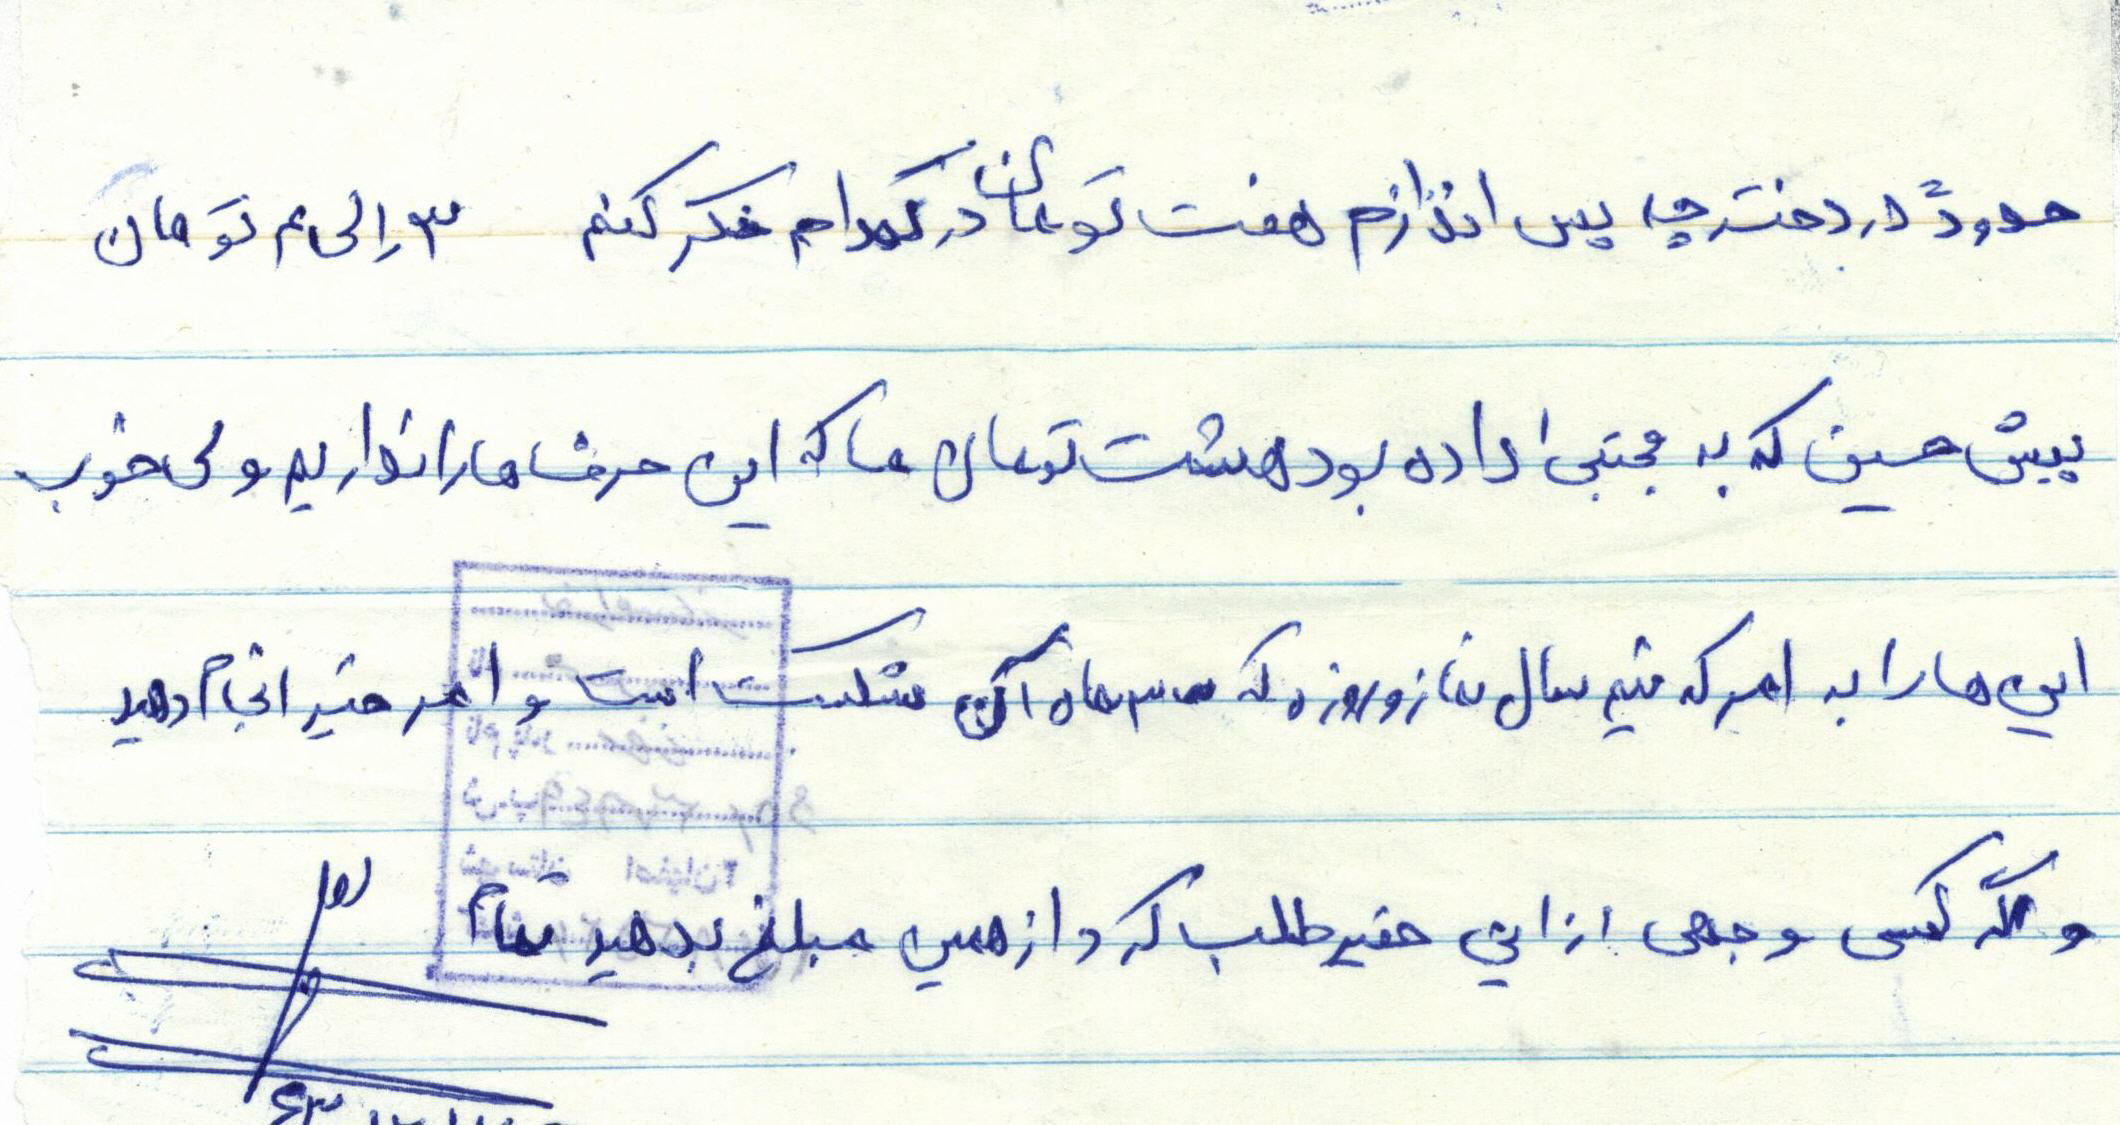 حدوداً در دفترچه پس اندازم هفت تومان در کدام فکر کنم ۳ الی ۴ تومان
پیش حسین که به مجتبی داده بود هشت تومان ما که این حرف ها را نداریم ولی خوب
این ها را به امر که نیم سال نماز و روزه که ۳ ماه آن شکست است و امر خیر انجام دهید
و اگه کسی وجهی از این حقیر طلب کرد از همین مبلغ بدهید تمام